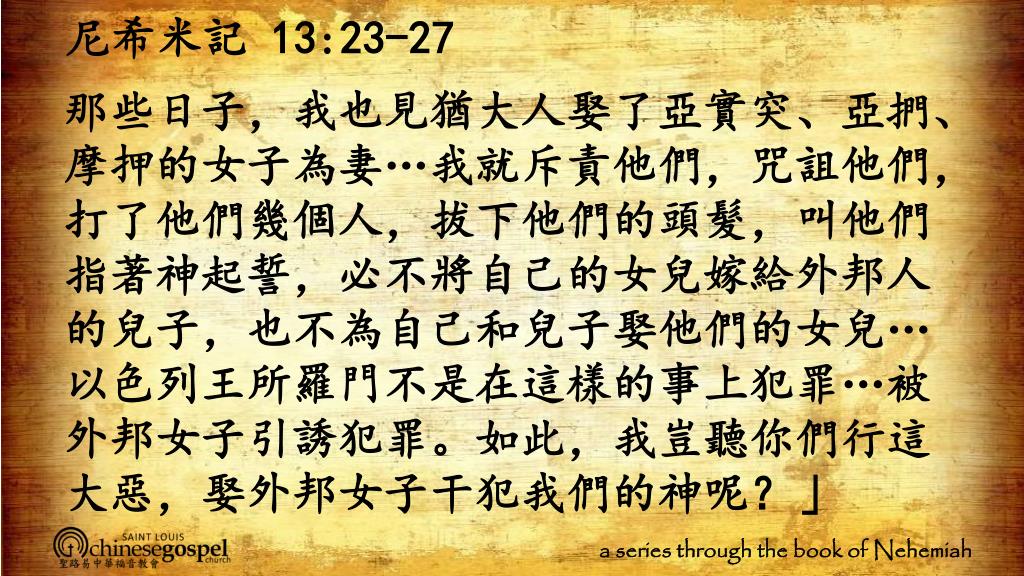 尼希米記 13:23-27
那些日子，我也見猶大人娶了亞實突、亞捫、
摩押的女子為妻…我就斥責他們，咒詛他們，
打了他們幾個人，拔下他們的頭髮，叫他們
指著神起誓，必不將自己的女兒嫁給外邦人
的兒子，也不為自己和兒子娶他們的女兒…
以色列王所羅門不是在這樣的事上犯罪…被
外邦女子引誘犯罪。如此，我豈聽你們行這
大惡，娶外邦女子干犯我們的神呢？」
SAINT LOUIS
chinesegospel
church
聖路易中華福音教會
a series through the book of Nehemiah